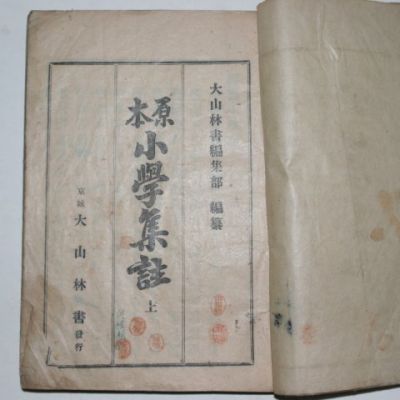 大山林書編集部 編纂
原本 小學集註 上
京城 大山林書 發行